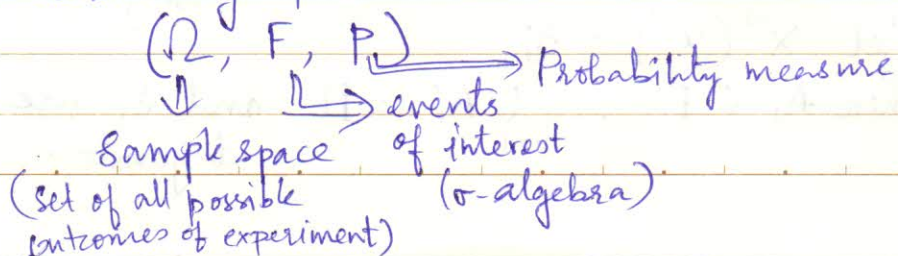 (Ω, F, P)
Probability measure
events
of interest
(σ-algebra)
Sample space
(set of all possible
outcomes of experiment)